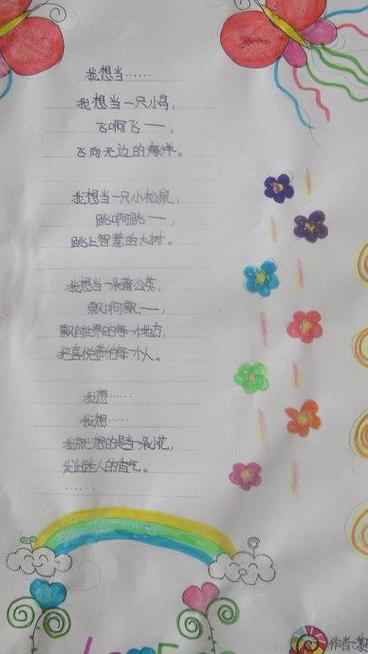 我想当……
我想当一只小鸟，
飞啊飞——，
飞向无边的
我想当一只小松鼠，
跳啊跳——，
跳上智慧的大树。
我想当一朵蒲公英，
飘啊飘——，
飘向世界的每一个地方，
把喜悦带给每一个人。
我想……
我想……
我所想的是当一朵小花，
迷人的香气。
……
作者：